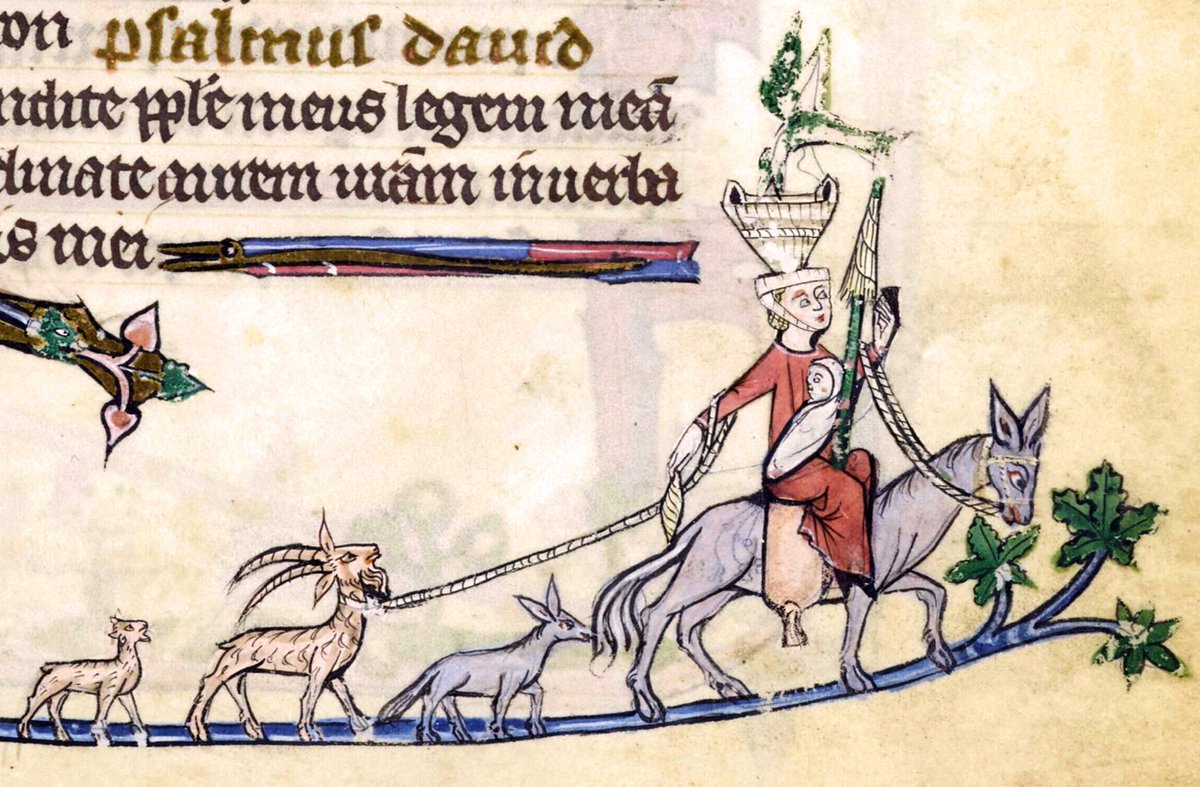 on psalmus dauid
ndite pple meus legem meā
clinate aurem urām in uerba
is mei